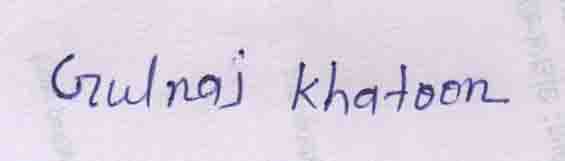 Gulnaj khatoon